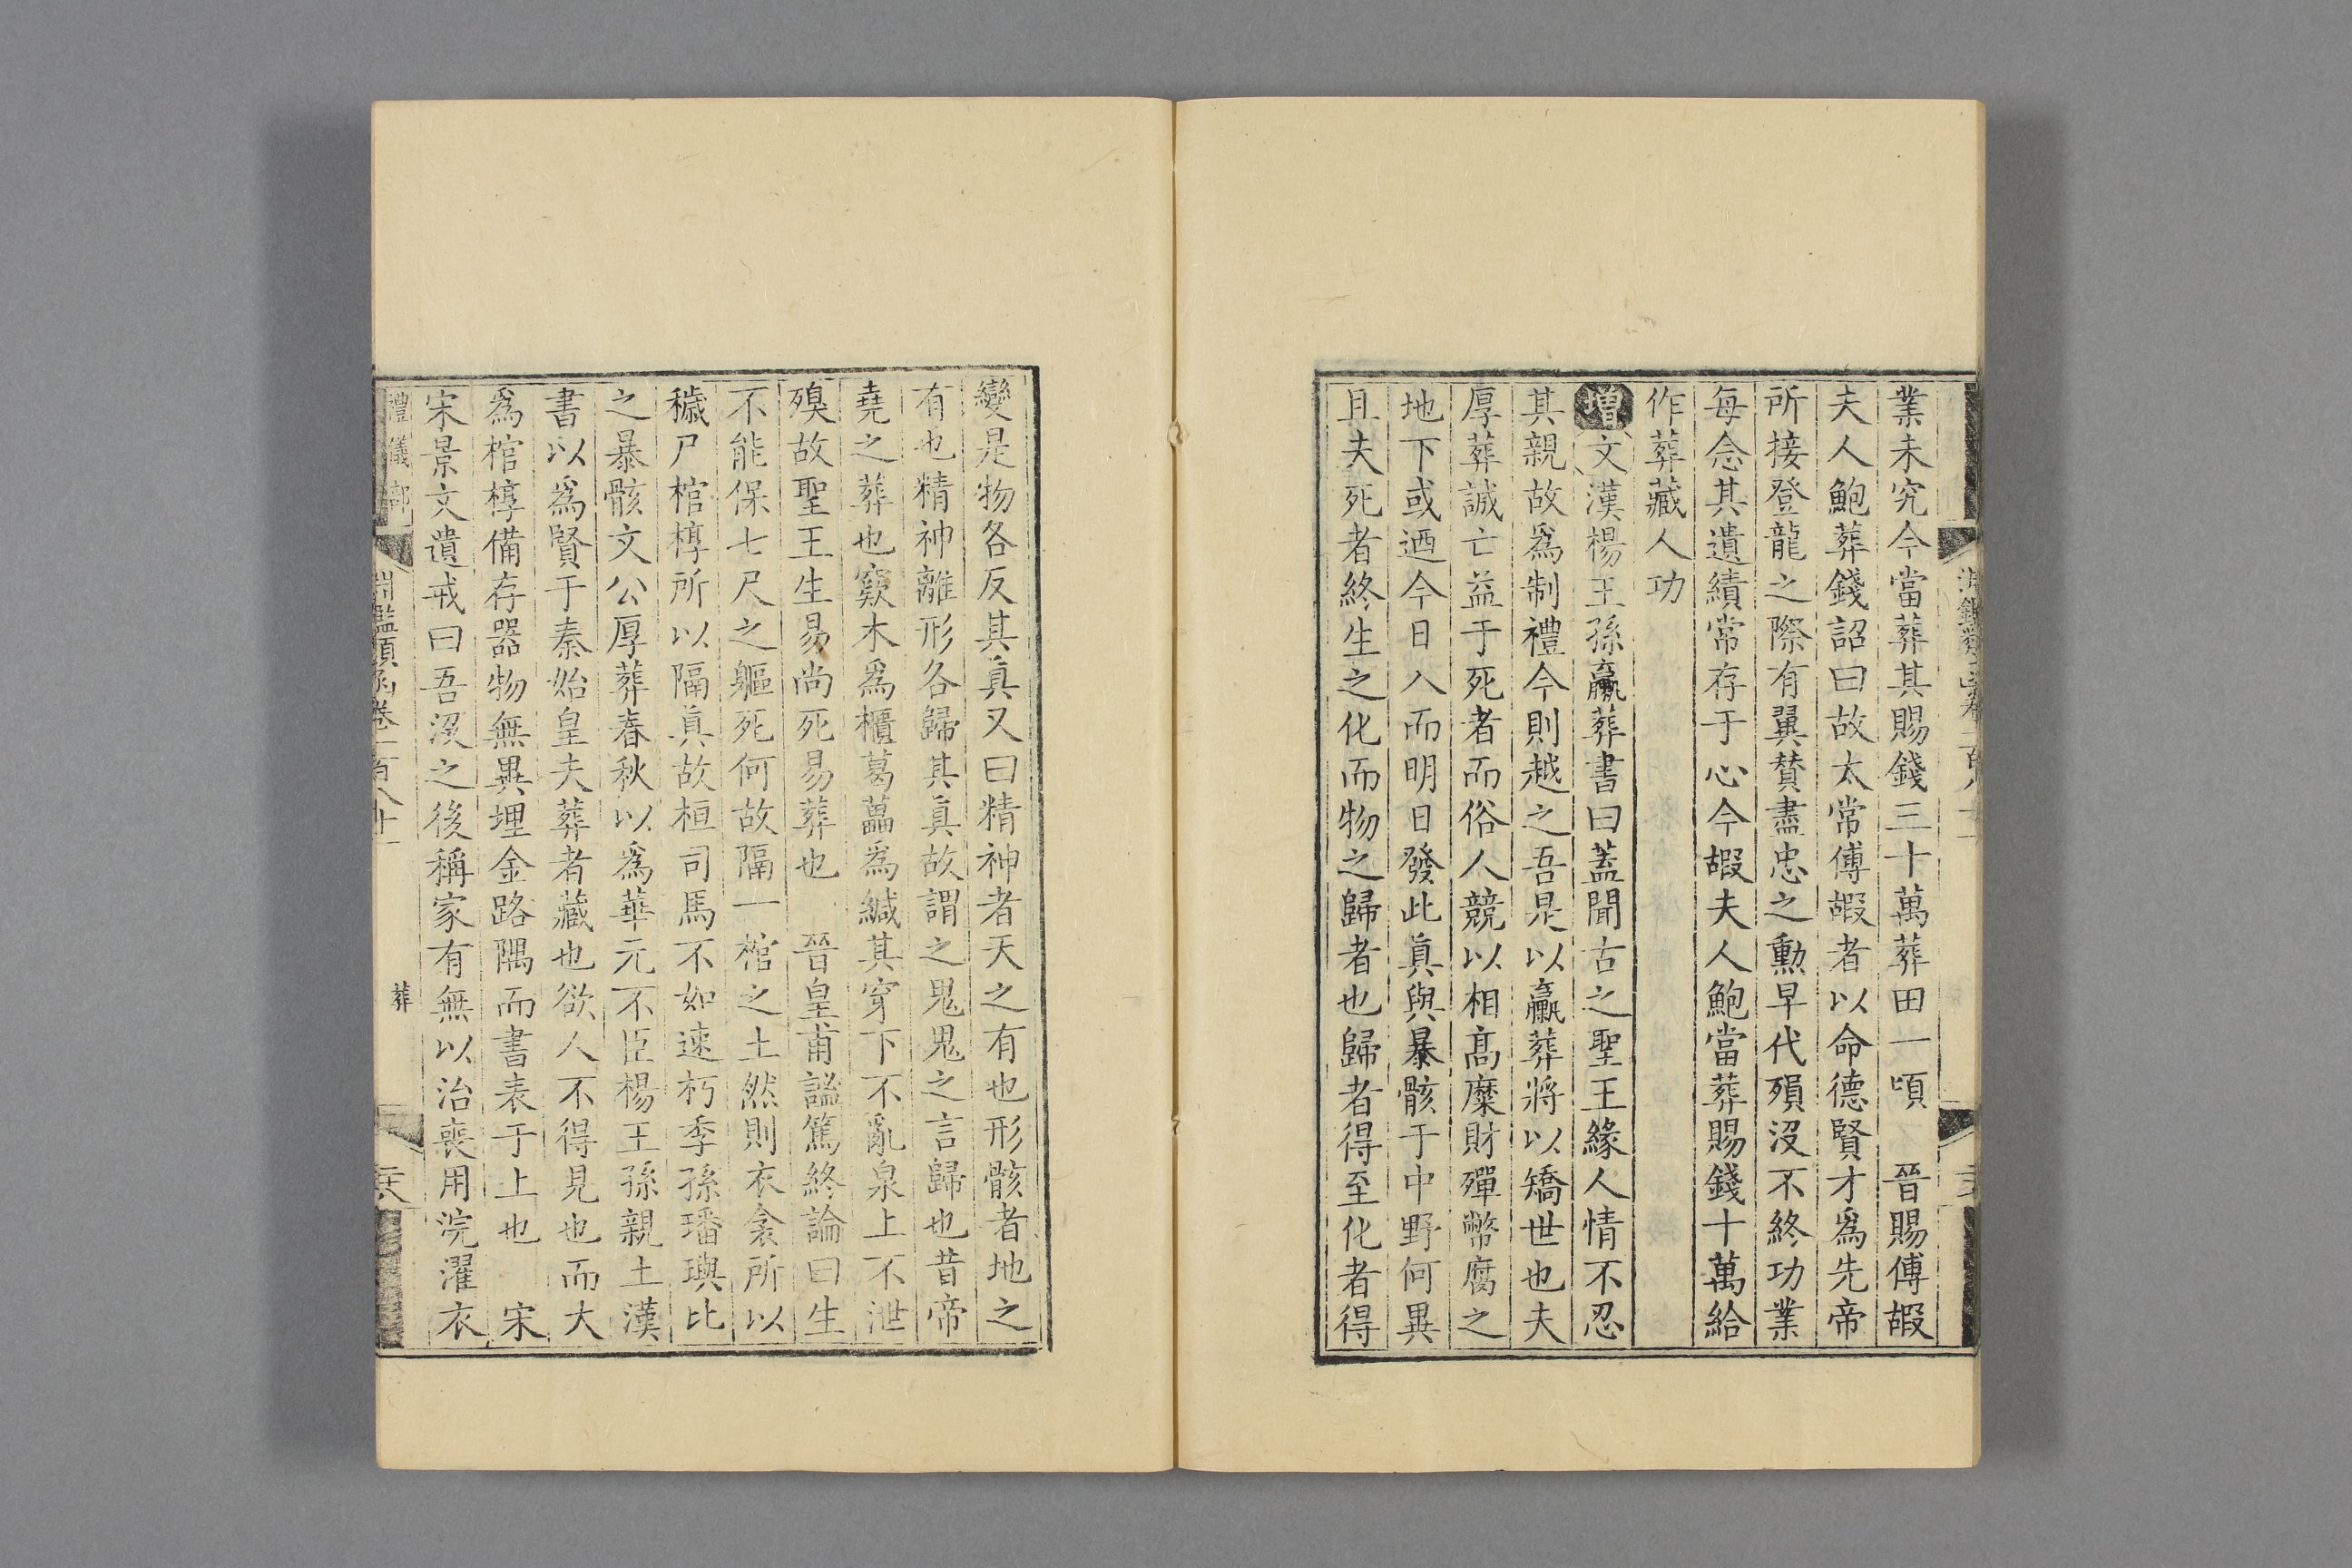 業未究今當葬其賜錢三十萬葬田一頃　晉賜傅嘏
夫人鮑葬錢詔曰故太常傅嘏者以命德賢才爲先帝
所接登龍之際有翼贊盡忠之勳早代殞沒不終功業
每念其遺績常存于心今嘏夫人鮑當葬賜錢十萬給
作葬藏人功
增文漢楊王孫臝葬書曰蓋聞古之聖王緣人情不忍
其親故爲制禮今則越之吾是以臝葬將以矯世也夫
厚葬誠亡益于死者而俗人競以相高糜財殫幣腐之
地下或迺今日入而明日發此眞與暴骸于中野何異
且夫死者終生之化而物之歸者也歸者得至化者得
變是物各反其眞又曰精神者天之有也形骸者地之
有也精神離形各歸其眞故謂之鬼鬼之言歸也昔帝
堯之葬也窾木爲櫃葛藟爲緘其穿下不亂泉上不泄
殠故聖王生易尚死易葬也　晉皇甫謐篤終論曰生
不能保七尺之軀死何故隔一棺之土然則衣衾所以
穢尸棺椁所以隔眞故桓司馬不如速朽季孫璠璵比
之暴骸文公厚葬春秋以爲華元不臣楊王孫親土漢
書以爲賢于秦始皇夫葬者藏也欲人不得見也而大
爲棺椁備存器物無異埋金路隅而書表于上也　宋
宋景文遺戒曰吾沒之後稱家有無以治喪用浣濯衣
禮儀部　淵鑑類函卷一百八十一　葬